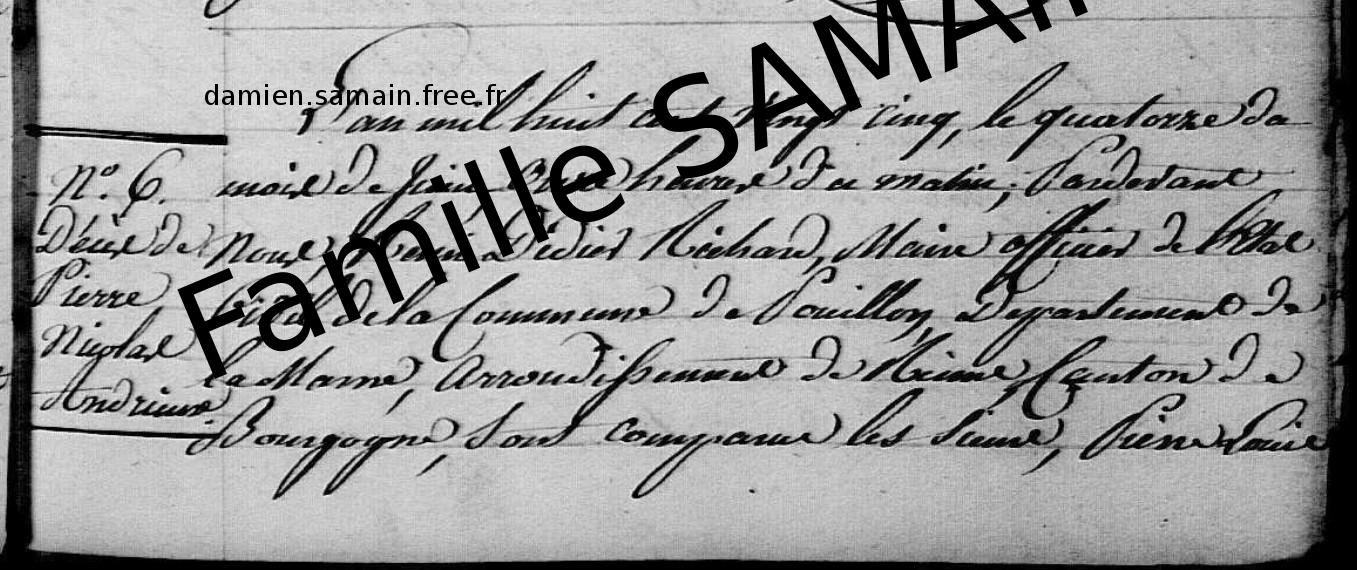 Famille SAMAIN
damien.samain.free.fr
L'an mil huit cent vingt cinq, le quatorze du
mois de Juin, heures du matin, Pardevant
Nous, Didier Richard, Maire officier de l'Etat
Civil de la Commune de Pouillon, Departement de
la Marne, Arrondissement de Reims, Canton de
Bourgogne, sont comparus les sieurs, Pierre Louis
N.o 6.
Décès de
Pierre
Nicolas
Andrieux